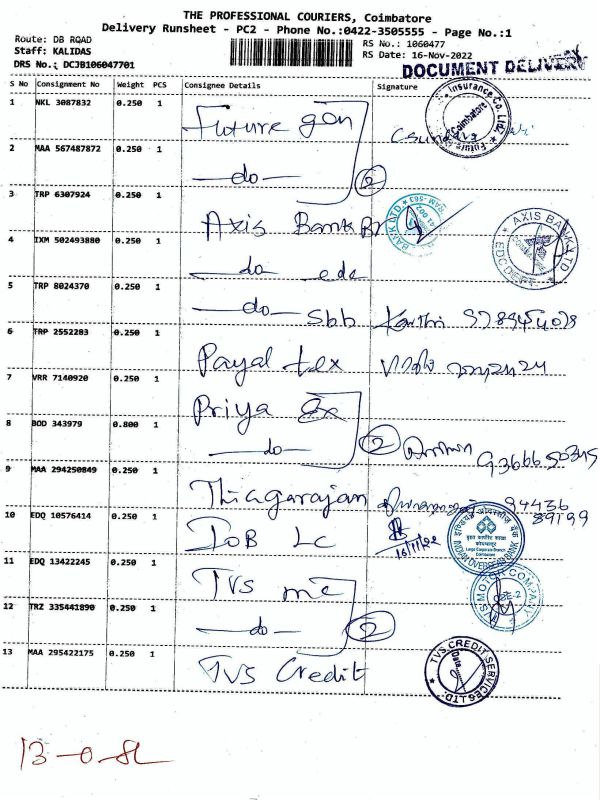 THE PROFESSIONAL COURIERS, Coimbatore
Delivery Runsheet - PC2 - Phone No.:0422-3505555 - Page No.:1
Route: DB RQAD
RS No.: 1060477
Staff: KALIDAS
RS Date: 16-Nov-2022
DRS No.: DCJB106047701
DOCUMENT DELIVERY
S No Consignment No Weight PCS Consignee Details Signature
1 NKL 3087832 0.250 1 Future gen
2 MAA 567487872 0.250 1 —do— 2
3 TRP 6307924 0.250 1 Axis Bank Br
4 IXM 502493880 0.250 1 —do— edc
5 TRP 8024370 0.250 1 —do— Sbb
6 TRP 2552283 0.250 1 Payal tex
7 VRR 7140920 0.250 1 Priya
8 BOD 343979 0.800 1 —do— 2
9 MAA 294250849 0.250 1 Thiagarajan 94436
10 EDQ 10576414 0.250 1 IOB LC 16/11/22
11 EDQ 13422245 0.250 1 TVS mc
12 TRZ 335441890 0.250 1 —do— 2
13 MAA 295422175 0.250 1 TVS Credit
Insurance Co. Ltd.
Coimbatore
BANK LTD
AXIS BANK LTD
INDIAN OVERSEAS BANK
TVS MOTOR COMPANY
TVS CREDIT SERVICES LTD